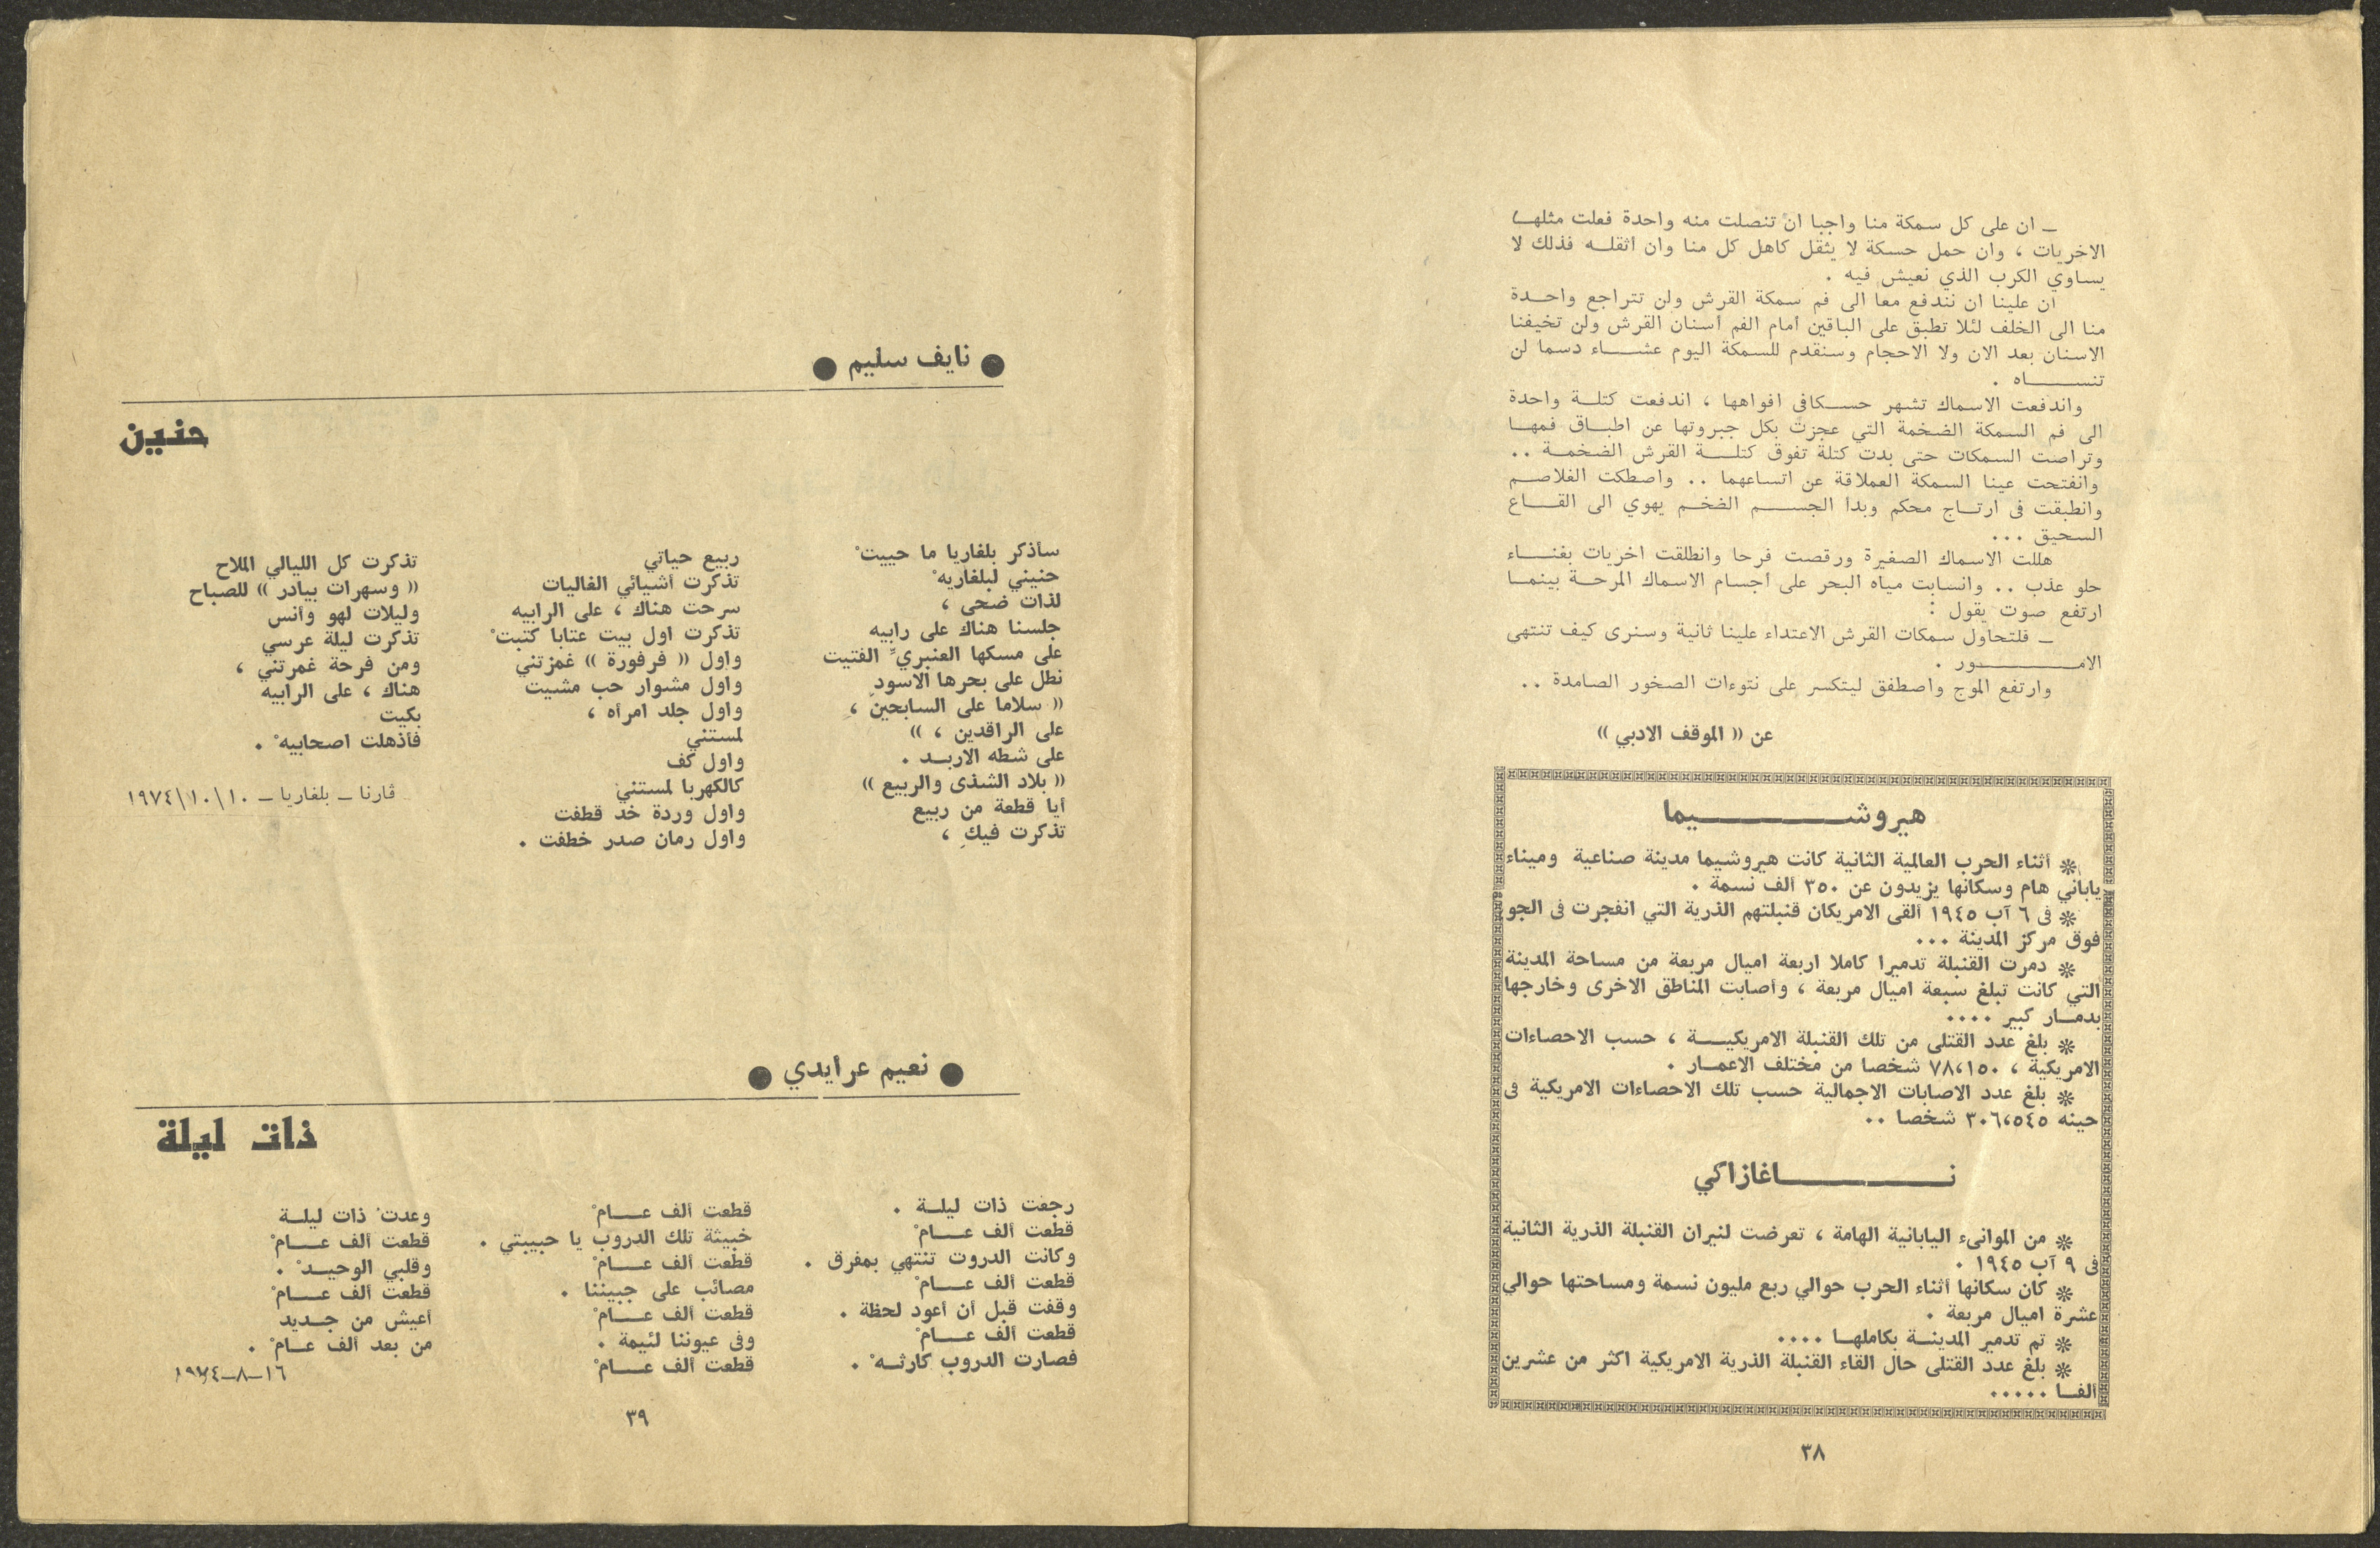 ــ ان على كل سمكة منا واجبا انْ تنصلت منه واحدة فعلت مثلهـا
الاخريات ، وان حمل حسكة لا يثقل كاهل كل منا وان أثقلـه فذلك لا
يساوي الكرب الذي نعيش فيه .
ان علينا ان نندفع معا الى فم سمكة القرش ولن تتراجع واحـدة
منا الى الخلف لئلا تطبق على الباقين أمام الفم أسنان القرش ولن تخيفنا
الاسنان بعد الان ولا الاحجام وسنقدم للسمكة اليوم عشـاء دسما لن
تنسـاه .
واندفعت الاسماك تشهر حسكافي افواهها ، اندفعت كتلـة واحدة
الى فم السمكة الضخمة التي عجزت بكل جبروتها عن اطبـاق فمهـا
وتراصت السمكات حتى بدت كتلة تفوق كتلـة القرش الضخمـة ..
وانفتحت عينا السمكة العملاقة عن اتساعهما .. واصطكت الغلاصـم
وانطبقت فى ارتـاج محكم وبدا الجسـم الضخـم يهوي الى القـاع
السحيق ...
هللت الاسماك الصغيرة ورقصت فرحا وانطلقت اخريات بغنـاء
حلو عذب .. وانسابت مياه البحر على أجسام الاسماك المرحـة بينمـا
ارتفع صوت يقول :
ــ فلتحاول سمكات القرش الاعتداء علينا ثانية وسنرى كيف تنتهى
الامـور .
وارتفع الموج واصطفق ليتكسر على نتوءات الصخور الصامدة ..
عن (( الموقف الادبي ))
هيروشـيما
* أثناء الحرب العالمية الثانية كانت هيروشيما مدينة صناعية وميناء
ياباني هام وسكانها يزيدون عن ٣٥٠ ألف نسمة .
* فى ٦ آب ١٩٤٥ ألقى الامريكان قنبلتهم الذرية التي انفجرت فى الجو
فوق مركز المدينة ...
* دمرت القنبلة تدميرا كاملا اربعة اميال مربعة من مساحة المدينة
التي كانت تبلغ سبعة اميال مربعة ، وأصابت المناطق الاخرى وخارجها
بدمـار كبير ....
* بلغ عدد القتلى من تلك القنبلة الامريكيـة ، حسب الاحصاءات
الامريكية ، ٧٨،١٥٠ شخصا من مختلف الاعمـار .
* بلغ عدد الاصابات الاجمالية حسب تلك الاحصاءات الامريكية فى
حينه ٣٠٦،٥٤٥ شخصا ..
نـاغازاكي
* من الموانىء اليابانية الهامة ، تعرضت لنيران القنبلة الذرية الثانية
فى ٩ آب ١٩٤٥ .
* كان سكانها أثناء الحرب حوالي ربع مليون نسمة ومساحتها حوالي
عشرة اميال مربعة .
* تم تدمير المدينـة بكاملهـا ....
* بلغ عدد القتلى حال القاء القنبلة الذرية الامريكية اكثر من عشرين
ألفـا .....
٣٨
● نايف سليم ●
حنين
سأذكر بلغاريا ما حييتْ
حنيني لبلغاريهْ
لذات ضحى ،
جلسنا هناك على رابيه
على مسكها العنبريِّ الفتيت
نطل على بحرها الاسودِ
(( سلاما على السابحين ،
على الراقدين ، ))
على شطه الاربـد .
(( بلاد الشذى والربيع ))
أيا قطعة من ربيع
تذكرت فيكِ ،
ربيع حياتي
تذكرت أشيائي الغاليات
سرحت هناك ، على الرابيه
تذكرت اول بيت عتابا كتبتْ
واول (( فرفورة )) غمزتني
واول مشوار حب مشيت
واول جلد امرأه ،
لمستني
واول كف
كالكهربا لمستني
واول وردة خد قطفت
واول رمان صدر خطفت .
تذكرت كل الليالي الملاح
(( وسهرات بيادر )) للصباح
وليلات لهو وأنس
تذكرت ليلة عرسي
ومن فرحة غمرتني ،
هناك ، على الرابيه
بكيت
فأذهلت اصحابيهْ .
ڤارنا ــ بلغاريا ــ ١٠\١٠\١٩٧٤
● نعيم عرايدي ●
ذات ليلة
رجعت ذات ليلـة .
قطعت ألف عـامْ
وكانت الدروت تنتهي بمفرق .
قطعت ألف عـامْ
وقفت قبل أن أعود لحظة .
قطعت ألف عـامْ
فصارت الدروب كارثـهْ .
قطعت ألف عـامْ
خبيثة تلك الدروب يا حبيبتي .
قطعت ألف عـامْ
مصائب على جبيننا .
قطعت ألف عـامْ
وفى عيوننا لئيمة .
قطعت ألف عـامْ
وعدتُ ذات ليلـة
قطعت ألف عـامْ
وقلبي الوحيـدْ .
قطعت ألف عـامْ
أعيش من جـديد
من بعد ألف عـامْ .
١٦–٨–١٩٧٤
٣٩